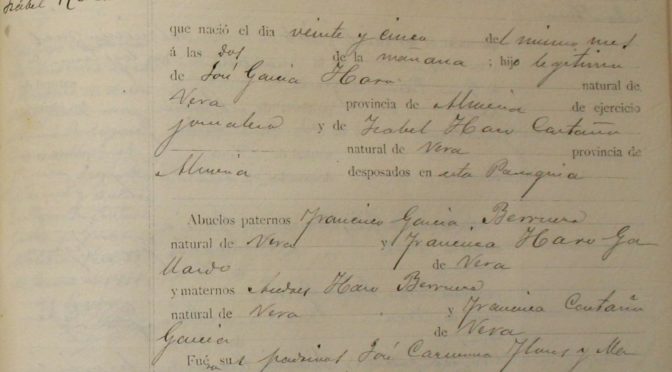 Isabel
que nació el dia veinte y cinco del mismo mes
á las dos de la mañana ; hijo legitimo
de José Garcia Haro natural de
Vera provincia de Almeria de ejercicio
jornalero y de Isabel Haro Castaño
natural de Vera provincia de
Almeria desposados en esta Parroquia
Abuelos paternos Francisco Garcia Berruezo
natural de Vera y Francisca Haro Ga
llardo de Vera
y maternos Andres Haro Berruezo
natural de Vera y Francisca Castaño
Garcia de Vera
Fué sus padrinos José Carmona Flores y